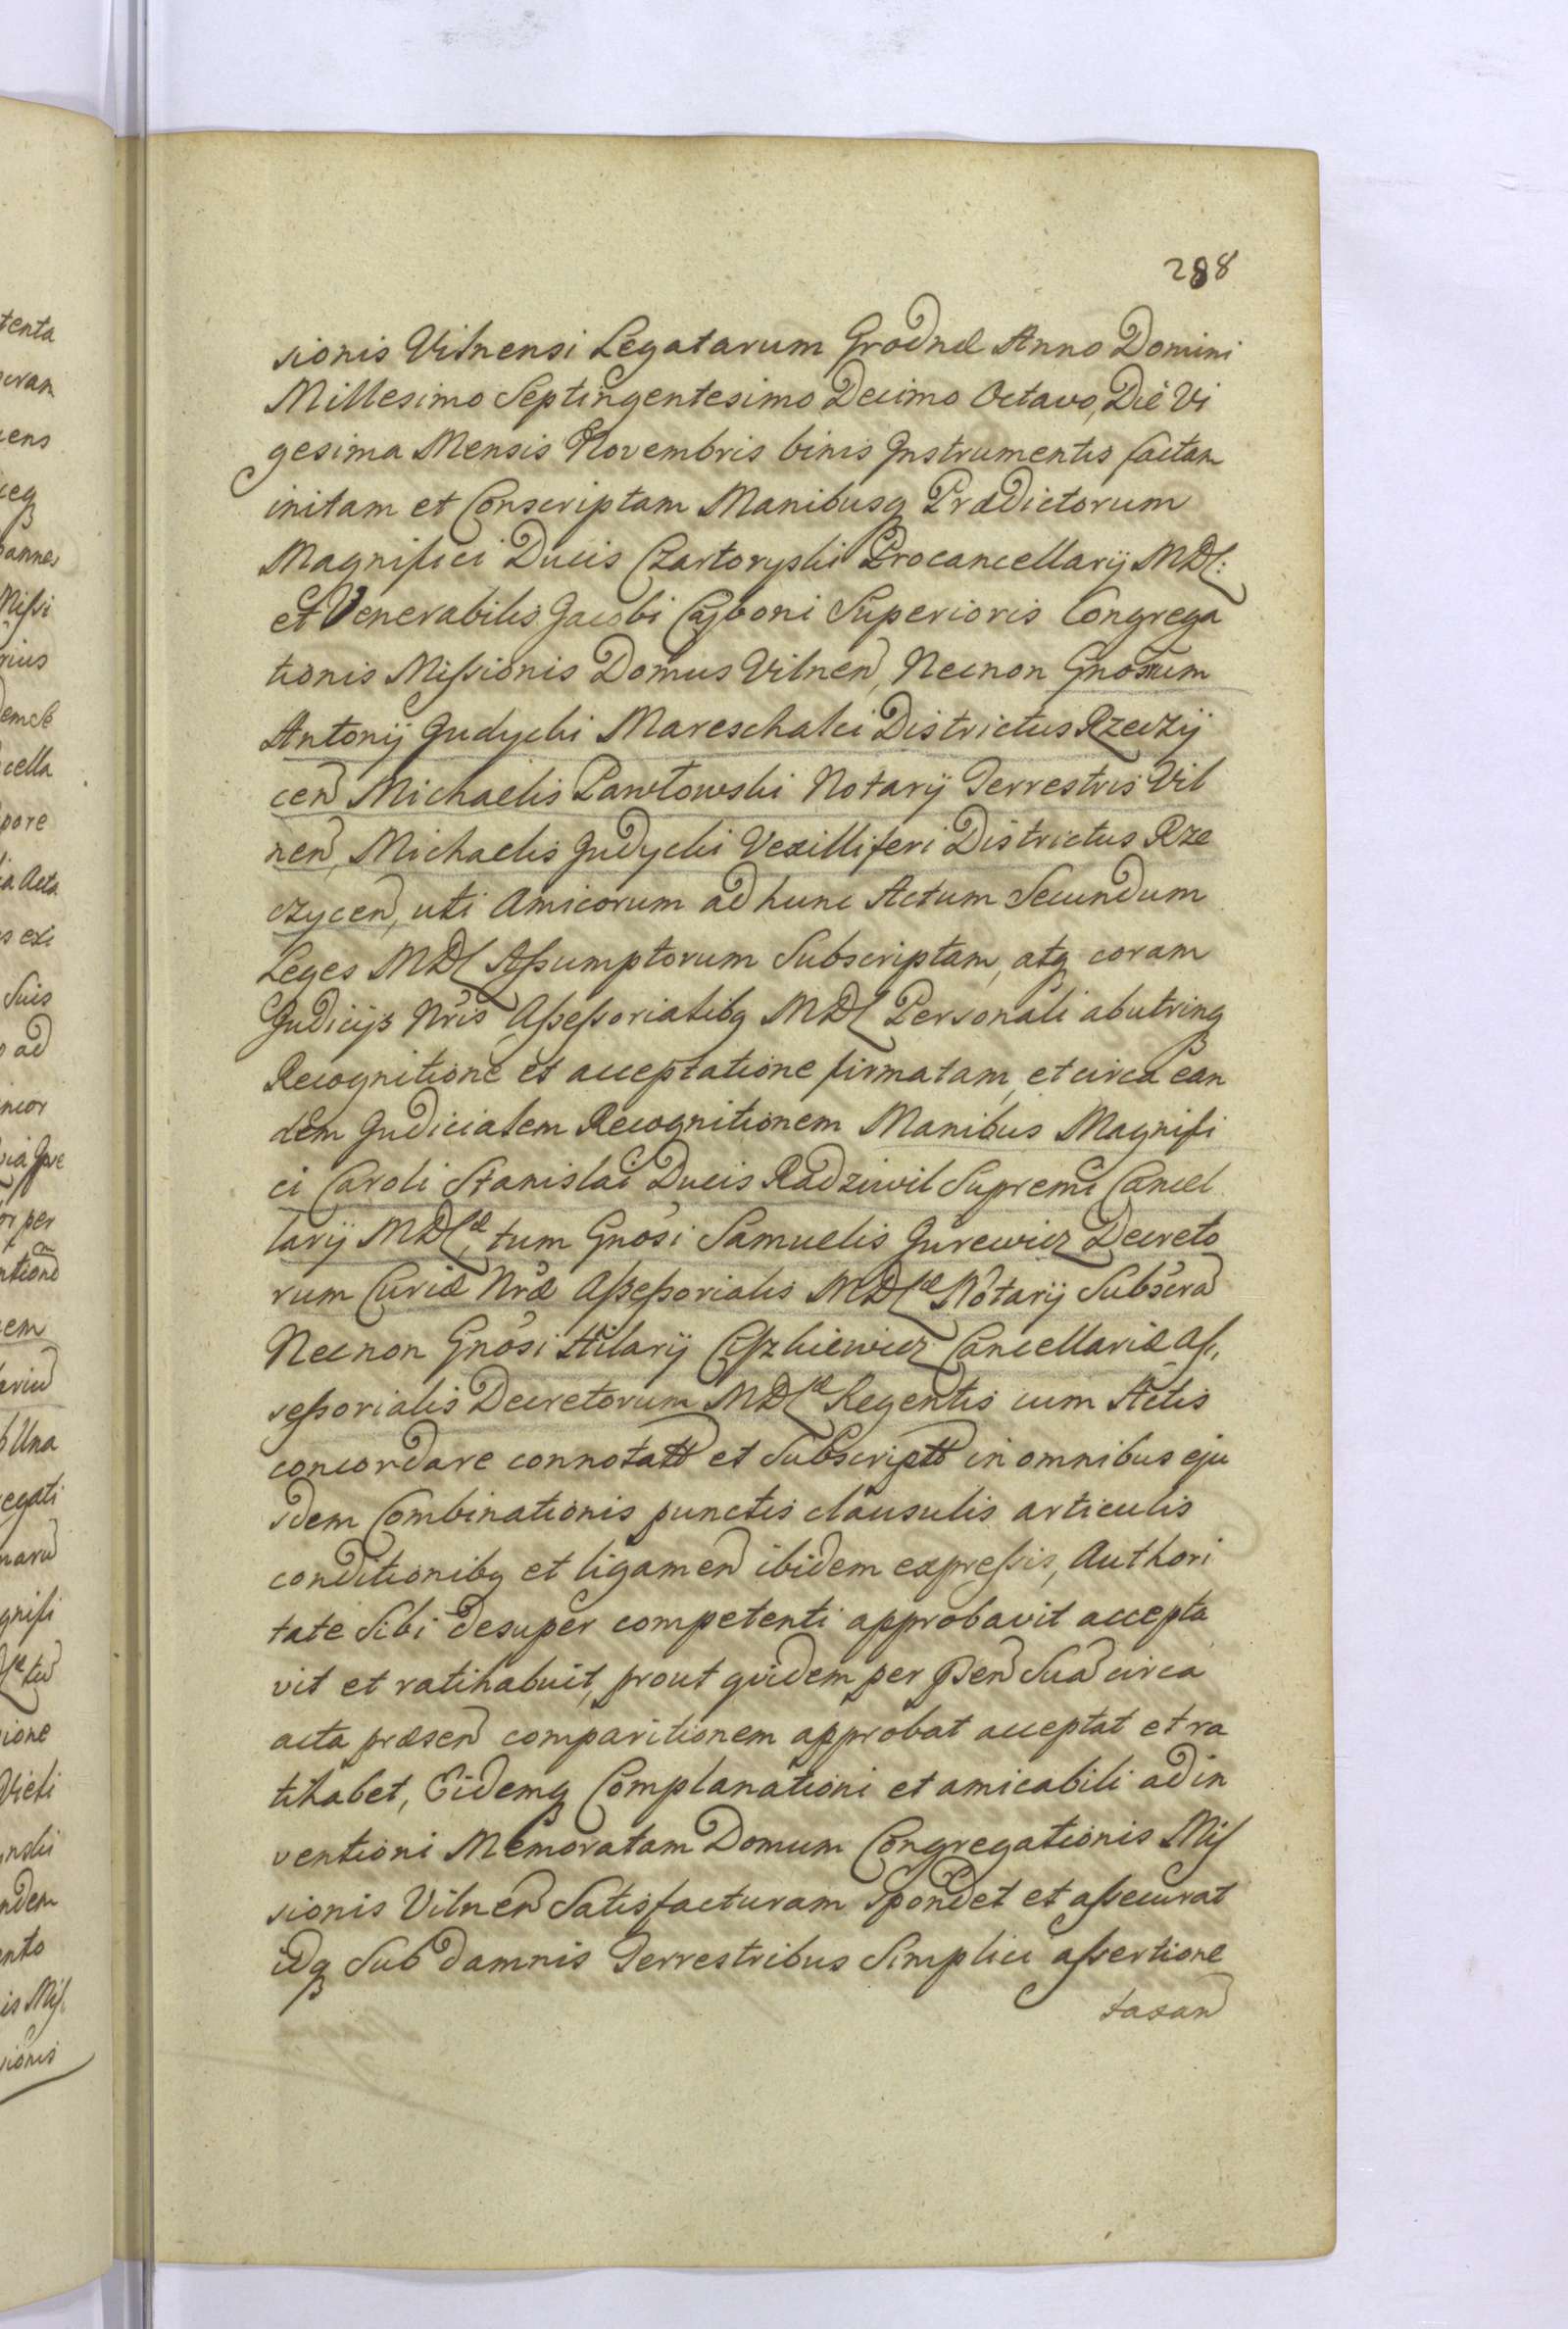 288
sionis Vilnensi Legatarum Grodnæ Anno Domini
Millesimo Septingentesimo Decimo Octavo, Die Vi
gesima Mensis Novembris binis Instrumentis factam
initam et Conscriptam Manibusq Prædictorum
Magnifici Ducis Czartoryski Procancellarij MDL:
et Venerabilis Jacobi Cajboni Superioris Congrega
tionis Missionis Domus Vilnen, Necnon Gnosrum
Antonij Judycki Mareschalci Districtus Rzeczij
cen Michaelis Pawłowski Notarij Terrestris Vil
nen, Michaelis Judycki Vexilliferi Districtus Rze
czycen, uti Amicorum ad hunc Actum Secundum
Leges MDL Assumptorum Subscriptam, atq coram
Judicijs Nris Assessorialibq MDL Personali abutrinq
Recognitione et acceptatione firmatam, et circa ean
dem Judicialem Recognitionem Manibus Magnifi
ci Caroli Stanislai Ducis Radziwil Supremi Cancel
larij MDLæ, tum Gnosi Samuelis Jurewicz Decreto
rum Curiæ Nræ Assessorialis MDLæ Notarij Subscra
Necnon Gnosi Hilarij Ciszkiewicz Cancellariæ As,
sessorialis Decretorum MDLæ Regentis cum Actis
concordare connotatt et Subscriptt in omnibus eju
sdem Combinationis punctis clausulis articulis
conditionibq et ligamen ibidem expressis, Authori
tate Sibi desuper competenti approbavit accepta
vit et ratihabuit, prout quidem per psen Sua circa
acta præsen comparitionem approbat acceptat et ra
tihabet, Eidemq Complanationi et amicabili adin
ventioni Memoratam Domum Congregationis Mis
sionis Vilnen Satisfacturam spondet et assecurat
idq Sub damnis Terrestribus Simplici assertione
taxan